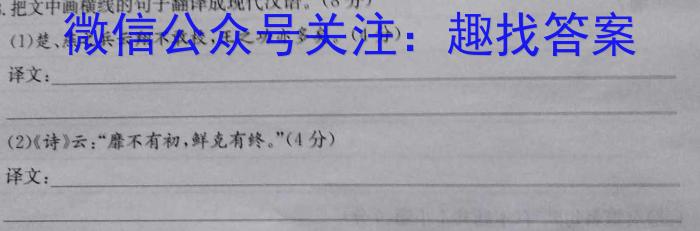 .把文中画横线的句子翻译成现代汉语。(8分)
微信公众号关注：趣找答案
(1)楚、
译文：
(2)《诗》云：“靡不有初，鲜克有终。”(4分)
译文：